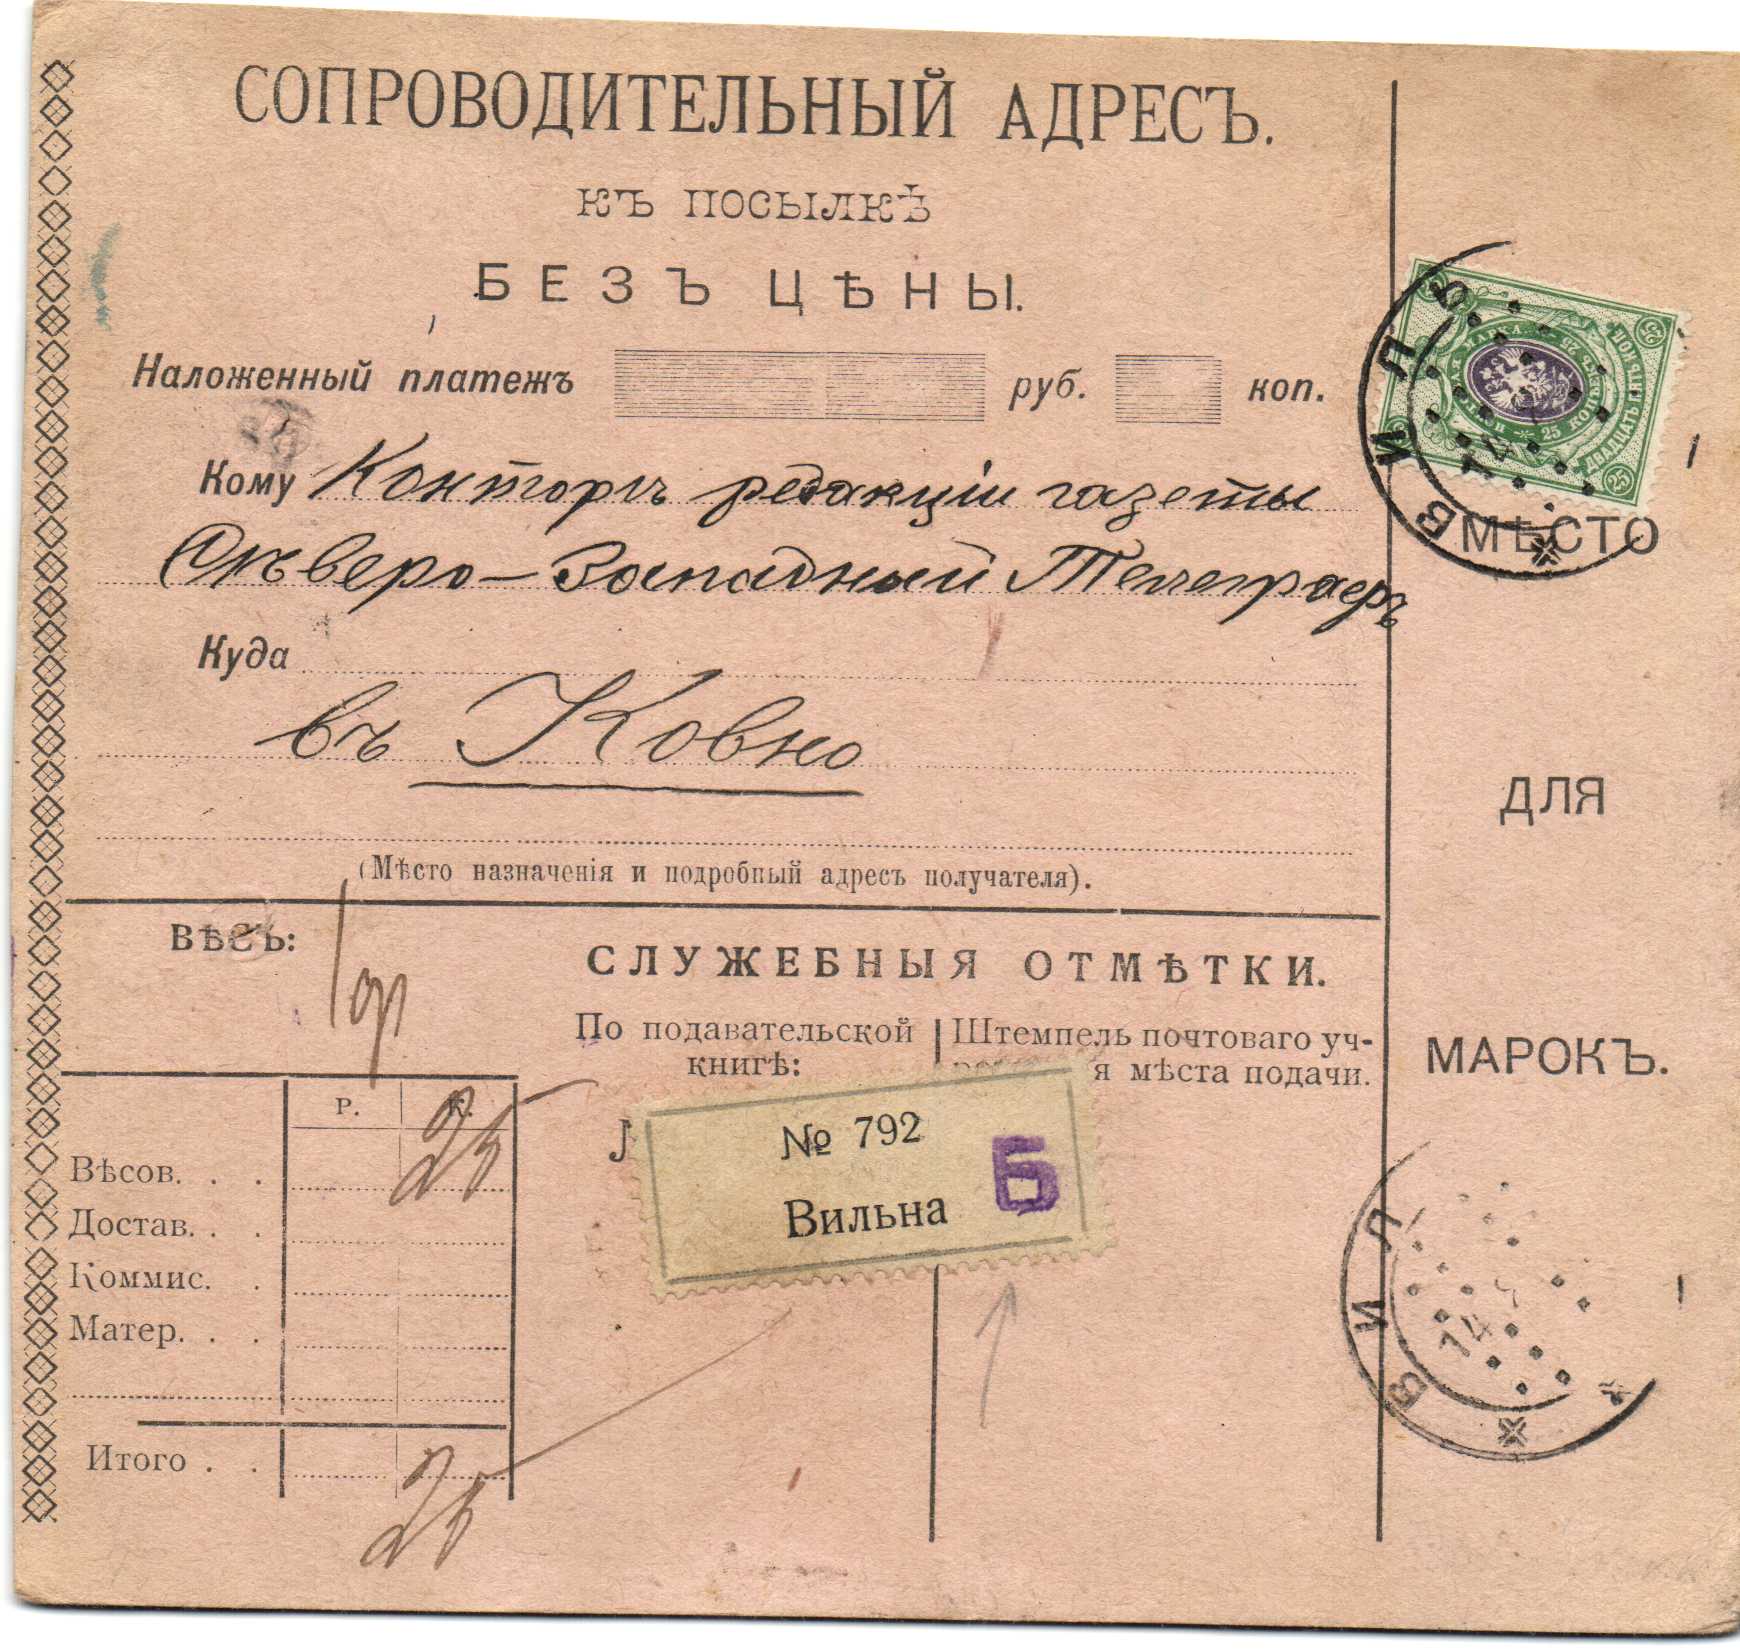 СОПРОВОДИТЕЛЬНЫЙ АДРЕСЪ.
КЪ ПОСЫЛКѢ
БЕЗЪ ЦѢНЫ.
Наложенный платежъ руб. коп.
Кому Конторѣ редакціи газеты
Сѣверо-Западный Телеграфъ
Куда
въ Ковно
(Мѣсто назначенія и подробный адресъ получателя).
МѢСТО
ДЛЯ
МАРОКЪ.
25 КОПѢЕКЪ 25
ДВАДЦАТЬ ПЯТЬ КОП.
25
25
ВИЛЬ
14
ВѢСЪ:
СЛУЖЕБНЫЯ ОТМѢТКИ.
По подавательской
книгѣ:
Штемпель почтоваго уч-
я мѣста подачи.
Р. К.
Вѣсов. . . 25
Достав. . .
Коммис. .
Матер. . .
Итого . . 25
№ 792
Вильна
Б
ВИЛ
14